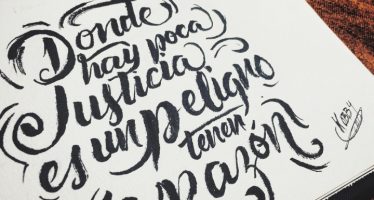 Donde
hay poca
Justicia
es un peligro
tener
razón